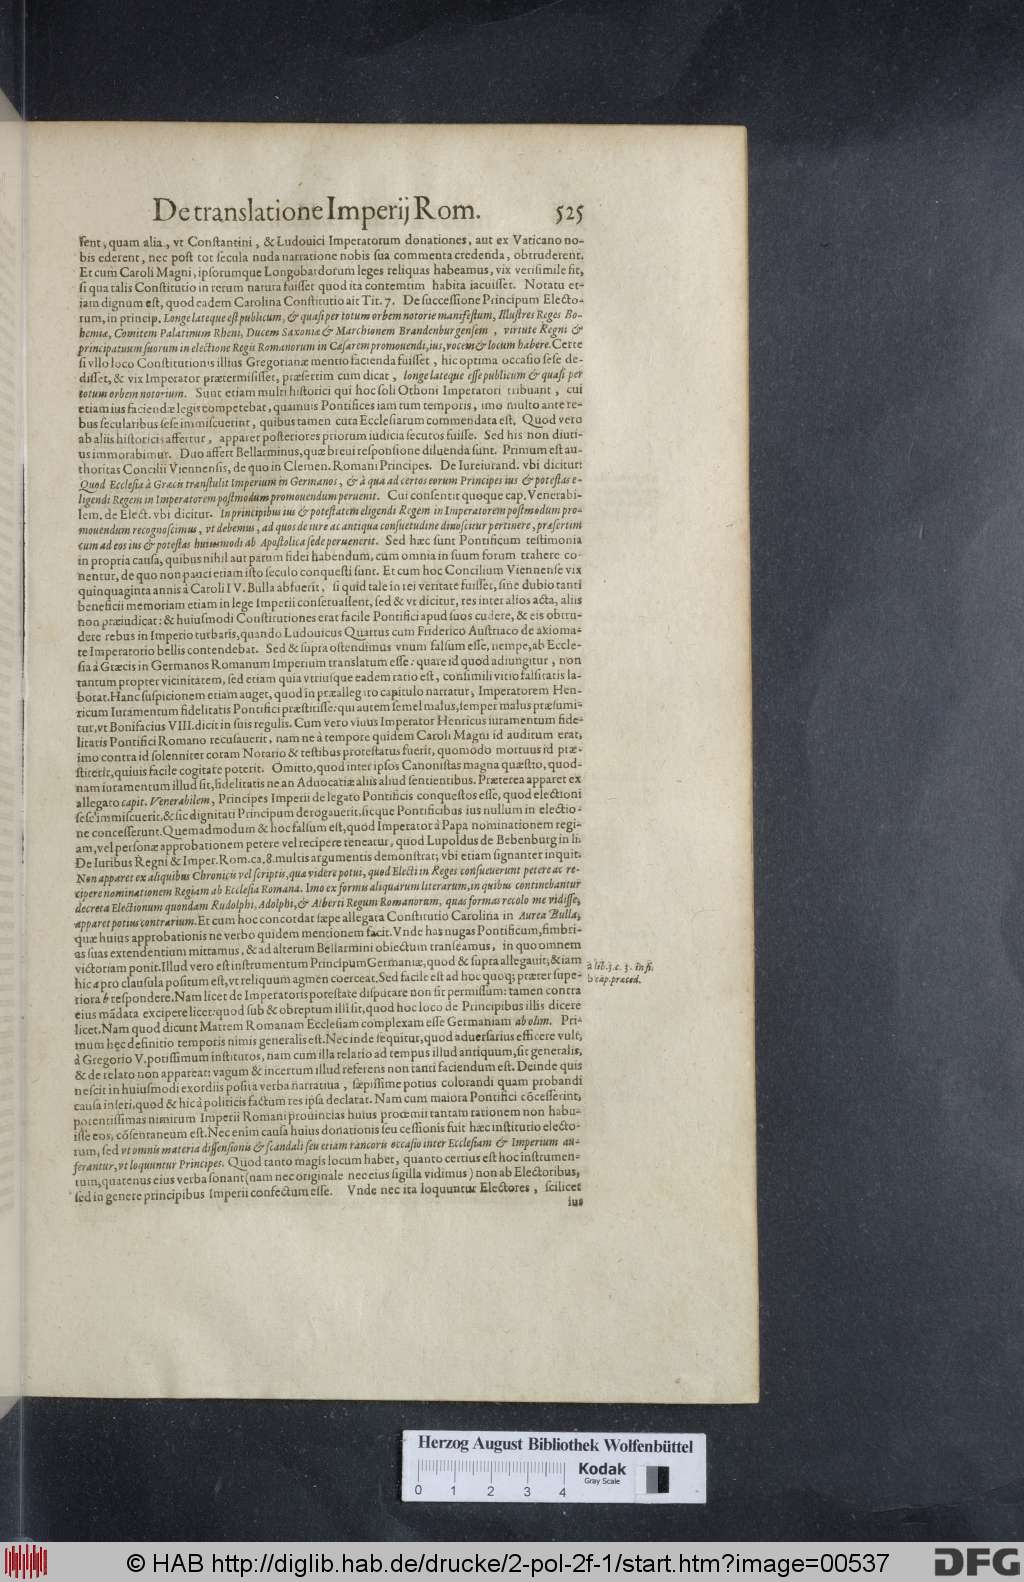 De translatione Imperij Rom. 525
sent, quam alia, vt Constantini, & Ludouici Imperatorum donationes, aut ex Vaticano no-
bis ederent, nec post tot secula nuda narratione nobis sua commenta credenda, obtruderent.
Et cum Caroli Magni, ipsorumque Longobardorum leges reliquas habeamus, vix verisimile sit,
si qua talis Constitutio in rerum natura fuisset quod ita contemtim habita iacuisset. Notatu et-
iam dignum est, quod eadem Carolina Constitutio ait Tit. 7. De successione Principum Electo-
rum, in princip. Longe lateque est publicum, & quasi per totum orbem notorie manifestum, Illustres Reges Bo-
hemiæ, Comitem Palatinum Rheni, Ducem Saxoniæ & Marchionem Brandenburgensem, virtute Regni &
principatuum suorum in electione Regis Romanorum in Cæsarem promouendi, ius, vocem & locum habere. Certe
si vllo loco Constitutionis illius Gregorianæ mentio facienda fuisset, hic optima occasio sese de-
disset, & vix Imperator prætermisisset, præsertim cum dicat, longe lateque esse publicum & quasi per
totum orbem notorium. Sunt etiam multi historici qui hoc soli Othoni Imperatori tribuant, cui
etiam ius faciendæ legis competebat, quamuis Pontifices iam tum temporis, imo multo ante re-
bus secularibus sese immiscuerint, quibus tamen cura Ecclesiarum commendata est. Quod vero
ab aliis historicis affertur, apparet posteriores priorum iudicia secutos fuisse. Sed his non diuti-
us immorabimur. Duo affert Bellarminus, quæ breui responsione diluenda sunt. Primum est au-
thoritas Concilii Viennensis, de quo in Clemen. Romani Principes. De Iureiurand. vbi dicitur:
Quod Ecclesia à Græcis transtulit Imperium in Germanos, & à qua ad certos eorum Principes ius & potestas e-
ligendi Regem in Imperatorem postmodum promouendum peruenit. Cui consentit quoque cap. Venerabi-
lem. de Elect. vbi dicitur. In principibus ius & potestatem eligendi Regem in Imperatorem postmodum pro-
mouendum recognoscimus, vt debemus, ad quos de iure ac antiqua consuetudine dinoscitur pertinere, præsertim
cum ad eos ius & potestas huiusmodi ab Apostolica sede peruenerit. Sed hæc sunt Pontificum testimonia
in propria causa, quibus nihil aut parum fidei habendum, cum omnia in suum forum trahere co-
nentur, de quo non pauci etiam isto seculo conquesti sunt. Et cum hoc Concilium Viennense vix
quinquaginta annis à Caroli IV. Bulla abfuerit, si quid tale in rei veritate fuisset, sine dubio tanti
beneficii memoriam etiam in lege Imperii conseruassent, sed & vt dicitur, res inter alios acta, aliis
non præiudicat: & huiusmodi Constitutiones erat facile Pontifici apud suos cudere, & eis obtru-
dere rebus in Imperio turbatis, quando Ludouicus Quartus cum Friderico Austriaco de axioma-
te Imperatorio bellis contendebat. Sed & supra ostendimus vnum falsum esse, nempe, ab Eccle-
sia à Græcis in Germanos Romanum Imperium translatum esse: quare id quod adiungitur, non
tantum propter vicinitatem, sed etiam quia vtriusque eadem ratio est, consimili vitio falsitatis la-
borat. Hanc suspicionem etiam auget, quod in præallegato capitulo narratur, Imperatorem Hen-
ricum Iuramentum fidelitatis Pontifici præstitisse: qui autem semel malus, semper malus præsumi-
tur, vt Bonifacius VIII. dicit in suis regulis. Cum vero viuus Imperator Henricus iuramentum fide-
litatis Pontifici Romano recusauerit, nam ne à tempore quidem Caroli Magni id auditum erat,
imo contra id solenniter coram Notario & testibus protestatus fuerit, quomodo mortuus id præ-
stiterit, quiuis facile cogitare poterit. Omitto, quod inter ipsos Canonistas magna quæstio, quod-
nam iuramentum illud sit, fidelitatis ne an Aduocatiæ aliis aliud sentientibus. Præterea apparet ex
allegato capit. Venerabilem, Principes Imperii de legato Pontificis conquestos esse, quod electioni
sese immiscuerit, & sic dignitati Principum derogauerit, sicque Pontificibus ius nullum in electio-
ne concesserunt. Quemadmodum & hoc falsum est, quod Imperator à Papa nominationem regi-
am, vel personæ approbationem petere vel recipere teneatur, quod Lupoldus de Bebenburg in li.
De Iuribus Regni & Imper. Rom. ca. 8. multis argumentis demonstrat; vbi etiam signanter inquit.
Non apparet ex aliquibus Chronicis vel scriptis, quæ videre potui, quod Electi in Reges consueuerunt petere ac re-
cipere nominationem Regiam ab Ecclesia Romana. Imo ex formis aliquarum literarum, in quibus continebantur
decreta Electionum quondam Rudolphi, Adolphi, & Alberti Regum Romanorum, quas formas recolo me vidisse,
apparet potius contrarium. Et cum hoc concordat sæpe allegata Constitutio Carolina in Aurea Bulla,
quæ huius approbationis ne verbo quidem mentionem facit. Vnde has nugas Pontificum, fimbri-
as suas extendentium mittamus, & ad alterum Bellarmini obiectum transeamus, in quo omnem
victoriam ponit. Illud vero est instrumentum Principum Germaniæ, quod & supra allegauit, & iam
hic a pro clausula positum est, vt reliquum agmen coerceat. Sed facile est ad hoc quoq; præter supe-
riora b respondere. Nam licet de Imperatoris potestate disputare non sit permissum: tamen contra
eius mādata excipere licet: quod sub & obreptum illi sit, quod hoc loco de Principibus illis dicere
licet. Nam quod dicunt Matrem Romanam Ecclesiam complexam esse Germaniam ab olim. Pri-
mum hęc definitio temporis nimis generalis est. Nec inde sequitur, quod aduersarius efficere vult,
à Gregorio V. potissimum institutos, nam cum illa relatio ad tempus illud antiquum, sit generalis,
& de relato non appareat: vagum & incertum illud referens non tanti faciendum est. Deinde quis
nescit in huiusmodi exordiis posita verba narratiua, sæpissime potius colorandi quam probandi
causa inseri, quod & hic à politicis factum res ipsa declarat. Nam cum maiora Pontifici cōcesserint,
potentissimas nimirum Imperii Romani prouincias huius proœmii tantam rationem non habu-
isse eos, cōsentaneum est. Nec enim causa huius donationis seu cessionis fuit hæc institutio electo-
rum, sed vt omnis materia dissensionis & scandali seu etiam rancoris occasio inter Ecclesiam & Imperium au-
ferantur, vt loquuntur Principes. Quod tanto magis locum habet, quanto certius est hoc instrumen-
tum, quatenus eius verba sonant (nam nec originale nec eius sigilla vidimus) non ab Electoribus,
sed in genere principibus Imperii confectum esse. Vnde nec ita loquuntur Electores, scilicet
ius
a lib. 3. c. 3. in fi.
b cap. præced.
Herzog August Bibliothek Wolfenbüttel
Kodak
Gray Scale
0 1 2 3 4
© HAB http://diglib.hab.de/drucke/2-pol-2f-1/start.htm?image=00537
DFG